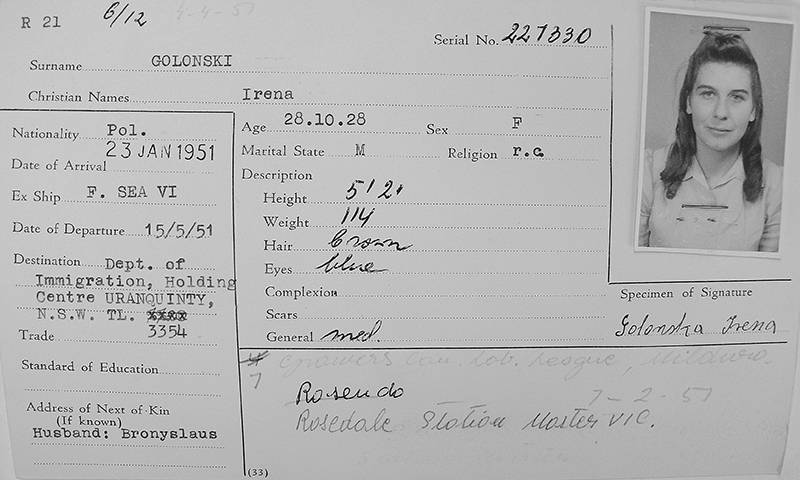 R 21 6/12 4-4-51
Serial No. 227330
Surname GOLONSKI
Christian Names Irena
Nationality Pol.
Date of Arrival 23 JAN 1951
Ex Ship F. SEA VI
Date of Departure 15/5/51
Destination Dept. of
Immigration, Holding
Centre URANQUINTY,
N.S.W. TL.
Trade 3354
Standard of Education
Address of Next of Kin
(If known)
Husband: Bronyslaus
Age 28.10.28 Sex F
Marital State M Religion r.c.
Description
Height 5'2"
Weight 114
Hair brown
Eyes blue
Complexion
Scars
General med.
Specimen of Signature
Golonska Irena
Growers Can. Lab. League, Mildura.
7
Rosendo
7-2-51
Rosedale Station Master VIC.
(33)